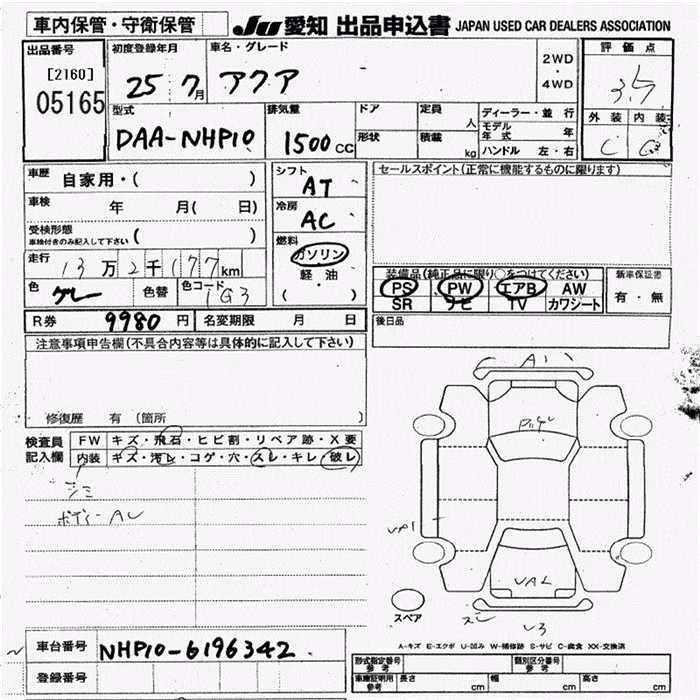 車内保管・守衛保管
JU 愛知 出品申込書 JAPAN USED CAR DEALERS ASSOCIATION
出品番号
[2160]
05165
初度登録年月
25 7月
車名・グレード
アクア
2WD
・
4WD
評価点
3.5
外装 内装
C
型式
DAA-NHP10
排気量
1500cc
ドア
形状
定員 人
積載 kg
ディーラー・並行
モデル年式 年
ハンドル 左・右
車歴 自家用・( )
車検 年 月( 日)
受検形態
車検付きのみ記入して下さい ( )
走行 13万2千177km
色 グレー 色替 色コード 1G3
シフト
AT
冷房
AC
燃料
ガソリン
軽・油
( )
セールスポイント(正常に機能するものに限ります)
装備品(純正品に限り○をつけてください)
PS PW エアB AW
SR ナビ TV カワシート
新車保証書
有・無
後日品
R券 9980円 名変期限 月 日
注意事項申告欄(不具合内容等は具体的に記入して下さい)
修復歴 有 (箇所 )
検査員
記入欄
FW キズ・飛石・ヒビ割・リペア跡・X要
内装 キズ・汚レ・コゲ・穴・スレ・キレ・破レ
ボディーAU
A1
UAL
U3
スペア
A-キズ E-エクボ U-凹み W-補修跡 S-サビ C-腐食 XX-交換済
車台番号 NHP10-6196342
登録番号
型式指定番号
参考
類別区分番号
参考
車庫証明用
参考
長さ cm 幅 cm 高さ cm